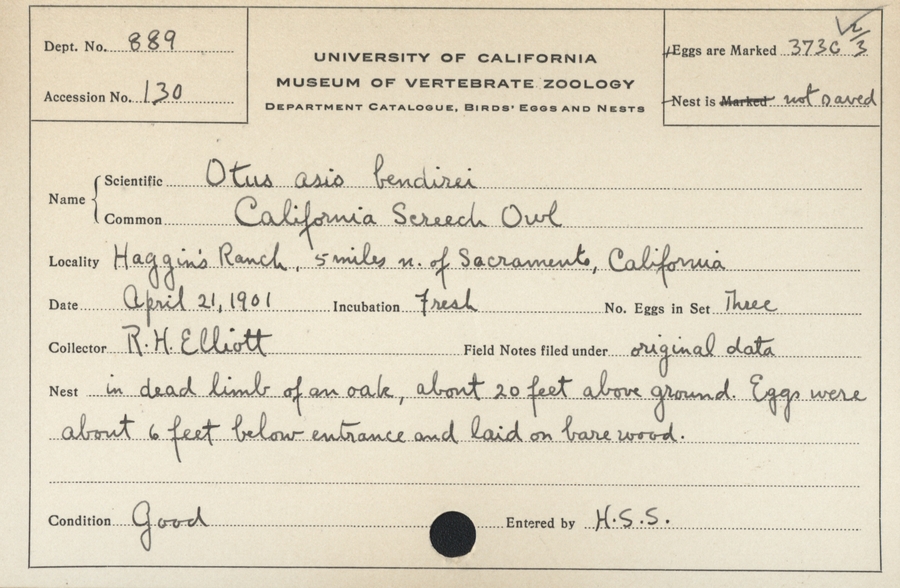 Dept. No. 889
Accession No. 130
UNIVERSITY OF CALIFORNIA
MUSEUM OF VERTEBRATE ZOOLOGY
DEPARTMENT CATALOGUE, BIRDS' EGGS AND NESTS
Eggs are Marked 373C 2/3
Nest is Marked not saved
Name
Scientific Otus asio bendirei
Common California Screech Owl
Locality Haggin's Ranch, 5 miles n. of Sacramento, California
Date April 21, 1901 Incubation Fresh No. Eggs in Set Three
Collector R. H. Elliott Field Notes filed under original data
Nest in dead limb of an oak, about 20 feet above ground. Eggs were
about 6 feet below entrance and laid on bare wood.
Condition Good Entered by H.S.S.